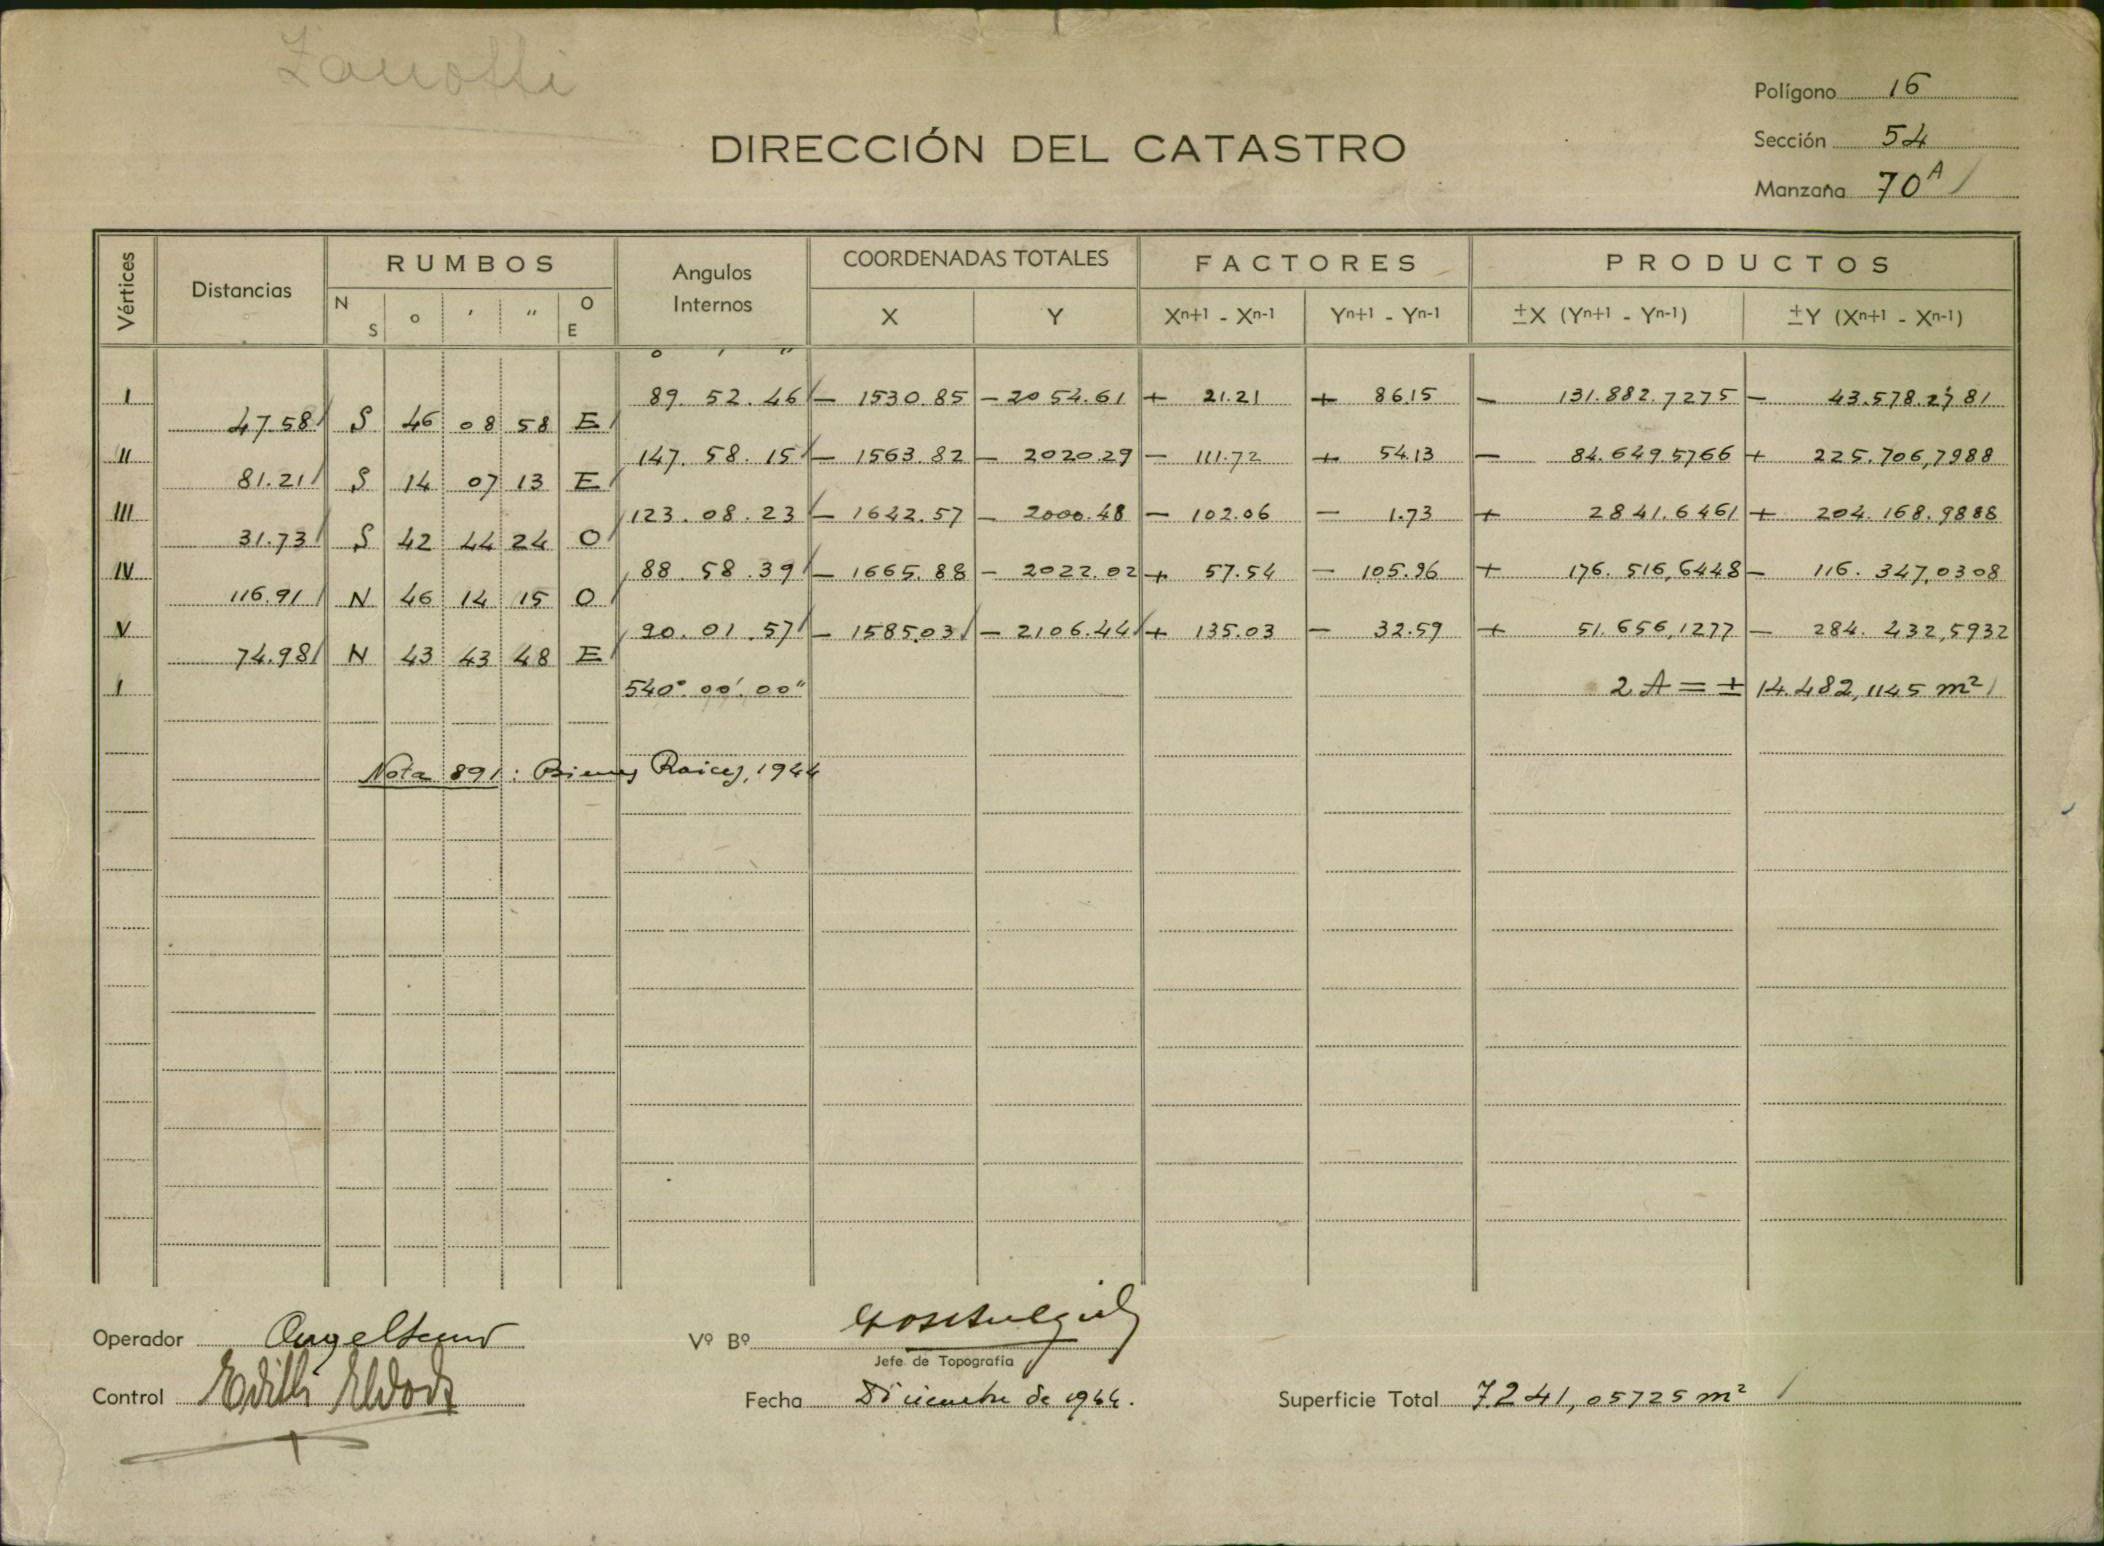 Zanotti
Polígono 16
Sección 54
Manzana 70A
DIRECCIÓN DEL CATASTRO
Vértices Distancias RUMBOS Angulos Internos COORDENADAS TOTALES FACTORES PRODUCTOS
N S o ' " O E X Y Xn+1 - Xn-1 Yn+1 - Yn-1 ±X (Yn+1 - Yn-1) ±Y (Xn+1 - Xn-1)
o ' "
I 89. 52. 46 - 1530.85 - 2054.61 + 21.21 + 86.15 - 131.882.7275 - 43.578.2781
47.58 S 46 08 58 E
II 147. 58. 15 - 1563.82 - 2020.29 - 111.72 + 54.13 - 84.649.5766 + 225.706,7988
81.21 S 14 07 13 E
III 123. 08. 23 - 1642.57 - 2000.48 - 102.06 - 1.73 + 2841.6461 + 204.168.9888
31.73 S 42 44 24 O
IV 88 58.39 - 1665.88 - 2022.02 + 57.54 - 105.96 + 176. 516,6448 - 116. 347,0308
116.91 N 46 14 15 O
V 90. 01. 57 - 1585.03 - 2106.44 + 135.03 - 32.59 + 51.656,1277 - 284. 432,5932
74.98 N 43 43 48 E
I 540° 00' 00" 2 A = ± 14.482,1145 m²
Nota 891: Bienes Raices, 1944
Operador
Vº Bº
Jefe de Topografía
Control
Fecha Diciembre de 1944.
Superficie Total 7.241,05725 m²